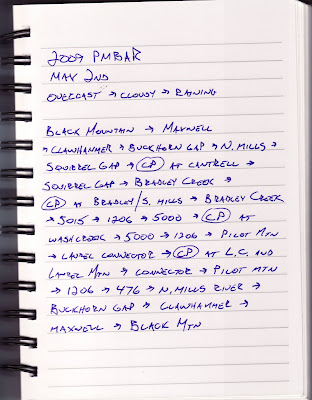 2009 PMBAR
MAY 2ND
OVERCAST → CLOUDY → RAINING
BLACK MOUNTAIN → MAXWELL
→ CLAWHAMMER → BUCKHORN GAP → N. MILLS →
SQUIRREL GAP → CP AT CANTRELL →
SQUIRREL GAP → BRADLEY CREEK →
CP AT BRADLEY/S. MILLS → BRADLEY CREEK
→ 5015 → 1206 → 5000 → CP AT
WASHCREEK → 5000 → 1206 → PILOT MTN
→ LAUREL CONNECTOR → CP AT L.C. AND
LAUREL MTN → CONNECTOR → PILOT MTN
→ 1206 → 476 → N. MILLS RIVER →
BUCKHORN GAP → CLAWHAMMER →
MAXWELL → BLACK MTN